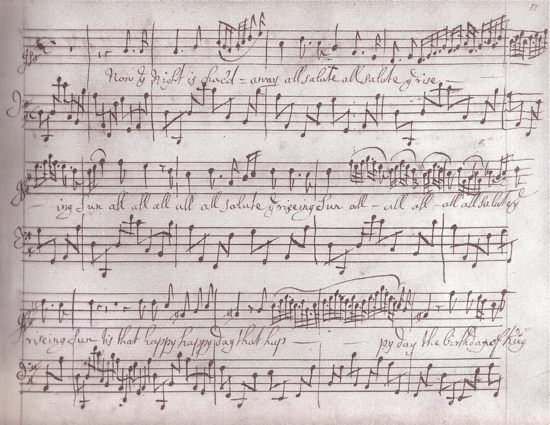 12
Now ye Night is chac'd - away all salute all salute ye rise -
- ing Sun all all all all all salute ye riseing Sun all - all all - all all salute ye
riseing Sun 'tis that happy happy day that hap - - py day the birthday of King